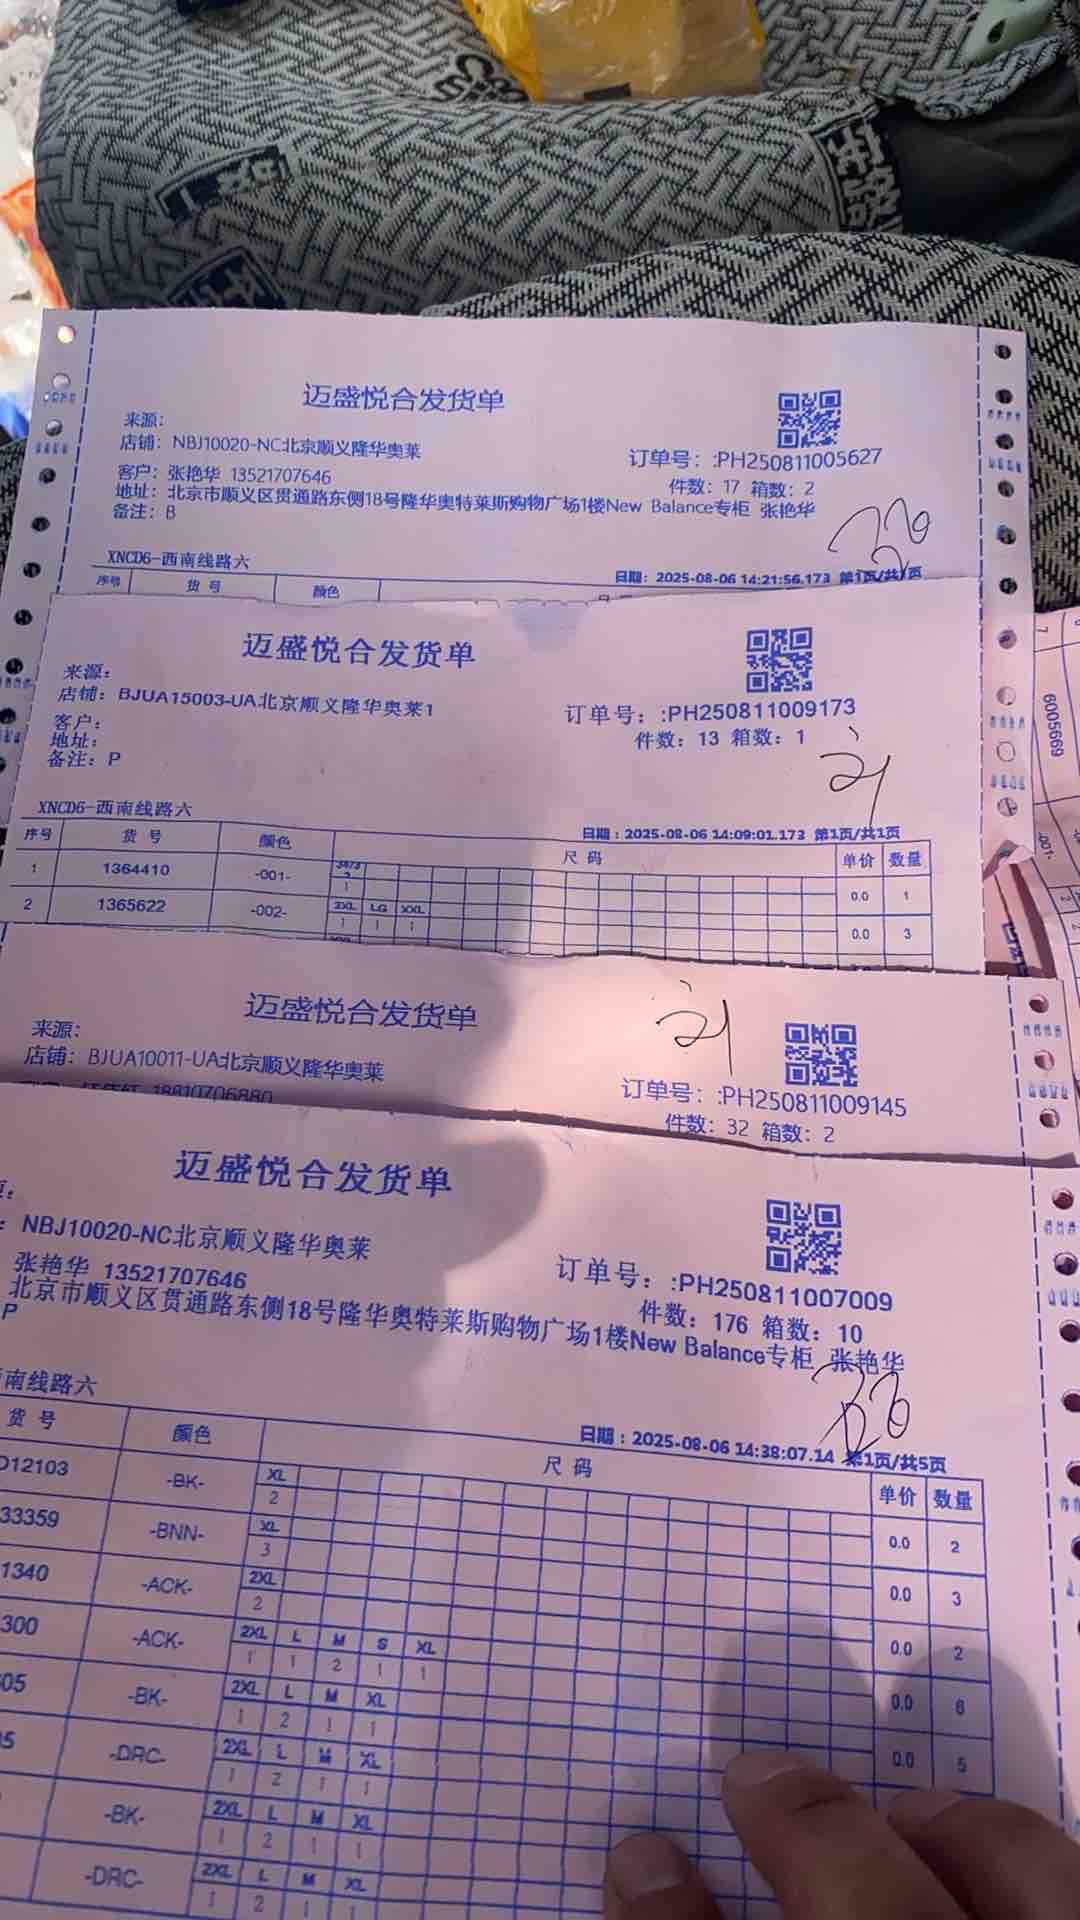 迈盛悦合发货单
来源:
店铺: NBJ10020-NC北京顺义隆华奥莱
订单号: :PH250811005627
客户: 张艳华 13521707646
件数: 17 箱数: 2
地址: 北京市顺义区贯通路东侧18号隆华奥特莱斯购物广场1楼New Balance专柜 张艳华
备注: B
XNCD6-西南线路六
日期: 2025-08-06 14:21:56.173 第1页/共1页
序号 货 号 颜色
迈盛悦合发货单
来源:
店铺: BJUA15003-UA北京顺义隆华奥莱1
订单号: :PH250811009173
客户:
件数: 13 箱数: 1
地址:
备注: P
XNCD6-西南线路六
日期: 2025-08-06 14:09:01.173 第1页/共1页
序号 货 号 颜色 尺 码 单价 数量
1 1364410 -001- 1 0.0 1
2 1365622 -002- 3XL LG XXL 0.0 3
1 1 1
6005669
-001-
迈盛悦合发货单
来源:
店铺: BJUA10011-UA北京顺义隆华奥莱
订单号: :PH250811009145
18810706880
件数: 32 箱数: 2
迈盛悦合发货单
: NBJ10020-NC北京顺义隆华奥莱
订单号: :PH250811007009
张艳华 13521707646
件数: 176 箱数: 10
北京市顺义区贯通路东侧18号隆华奥特莱斯购物广场1楼New Balance专柜 张艳华
P
南线路六
日期: 2025-08-06 14:38:07.14 第1页/共5页
货 号 颜色 尺 码 单价 数量
12103 -BK- XL 0.0 2
2
33359 -BNN- XL 0.0 3
3
1340 -ACK- 2XL 0.0 2
2
300 -ACK- 2XL L M S XL 0.0 6
1 1 2 1 1
05 -BK- 2XL L M XL 0.0 5
1 2 1 1
5 -DRC- 2XL L M XL
1 2 1 1
-BK- 2XL L M XL
1 2 1 1
-DRC- 2XL L M XL
1 2 1 1